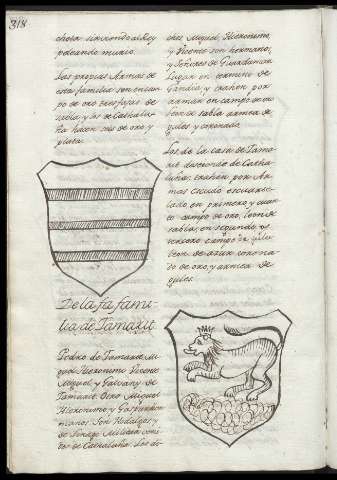 318
chora sirviendo al Rey
peleando murio.
Las propias Armas de
esta familia son en cam
po de oro tres fajas de
y los de Cathalu-
ña hacen seis de oro, y
plata.
De la fa fami-
lia de Tamarit.
Pedro de Tamarit, Mi
guel Hieronimo Vicente
Miguel, y Galvany de
Tamarit. Otro Miguel
Hieronimo, y Gaspar her
manos. Son Hidalgos, y
de linage Militar como
los de Cathaluña. Los di-
chos Miguel, Hieronimo,
y Vicente son hermanos,
y Señores de Guardamar
Lugar en termino de
Gandia, y trahen por
armas en campo de oro
leon de sable armea de
gules y coronado.
Los de la casa de Tama
rit desciende de Catha
luña: trahen por Ar
mas escudo esquarte
lado en primero, y quar
to campo de oro, leon de
sable, en segundo, y
tercero campo de gules
leon de azur corona
do de oro, y armea de
gules.